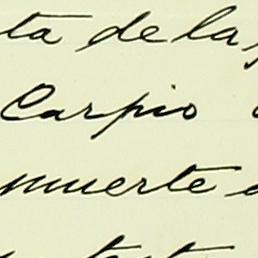 ta de la
Carpio
muerte